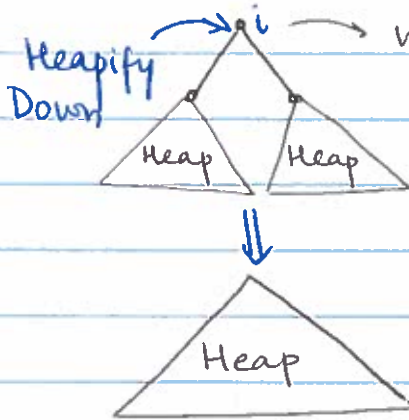 i
Heapify
Down
Heap Heap
Heap